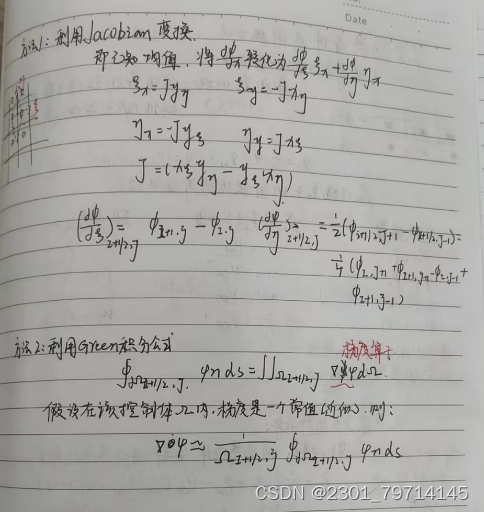 Date
方法1: 利用Jacobian 变换.
即已知均值, 将 dφ/dx 转化为 dφ/dξ ξx + dφ/dη ηx
ξx = Jyη ξy = -Jxη
ηx = -Jyξ ηy = Jxξ
J = (xξ yη - yξ xη)
(dφ/dξ)z+1/2,j = φz+1,j - φz,j (dφ/dη)z+1/2,j = 1/2(φz+1/2,j+1 - φz+1/2,j-1) =
1/4 (φz,j+1 + φz+1,j+1 - φz,j-1 +
φz+1,j-1)
方法2: 利用Green积分公式
梯度算子
∮∂Ωz+1/2,j φn ds = ∬Ωz+1/2,j ∇φ dΩ.
假设在该控制体Ω内, 梯度是一个常值(近似). 则:
∇φ ≈ 1/Ωz+1/2,j ∮∂Ωz+1/2,j φn ds
CSDN @2301_79714145